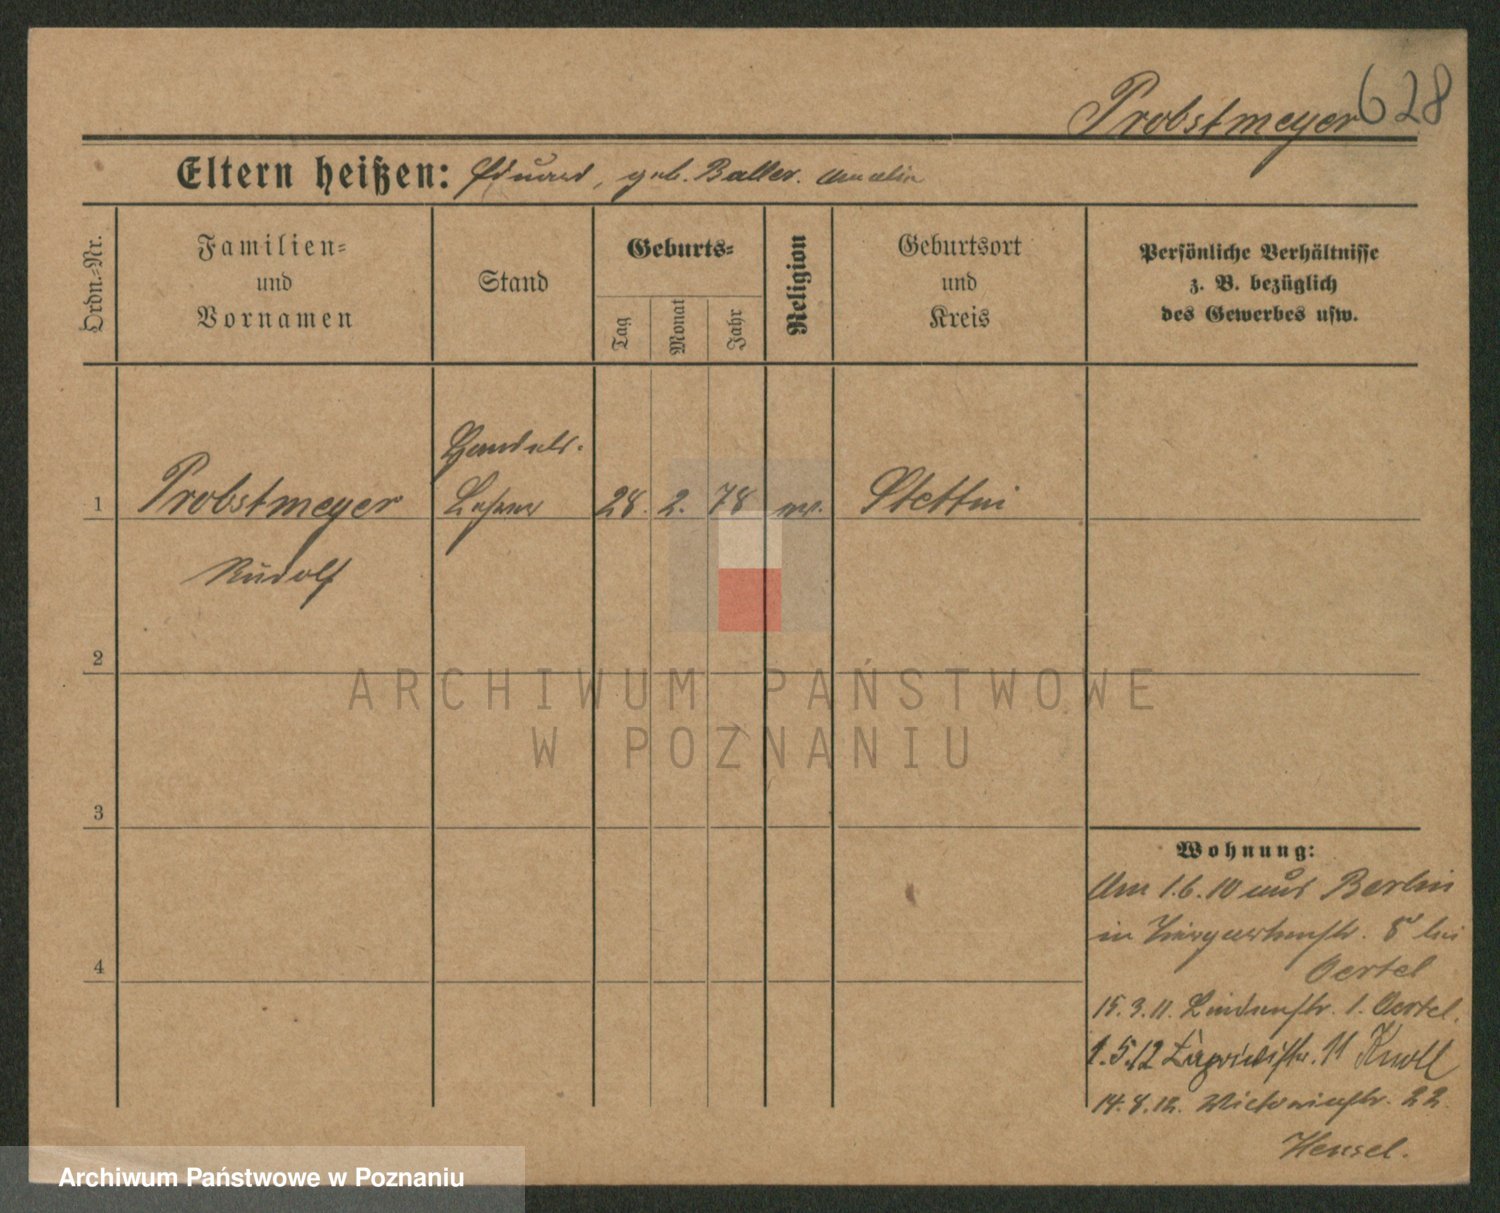 628
Probstmeyer
Eltern heißen: Eduard, geb. Baller. Amalie
Ordn.-Nr.
Familien-
und
Vornamen
Stand
Geburts-
Tag
Monat
Jahr
Religion
Geburtsort
und
Kreis
Persönliche Verhältnisse
z. B. bezüglich
des Gewerbes usw.
Handels-
1 Probstmeyer Lehrer 28. 2. 78 ev. Stettin
Rudolf
2
3
4
Wohnung:
Am 1.6.10 aus Berlin
in 5 bei
Oertel
15.3.11. Lindenstr. 1. Oertel.
1.5.12 11 Knoll
14.8.12. Victoriastr. 22
Hensel.
ARCHIWUM PAŃSTWOWE
W POZNANIU
Archiwum Państwowe w Poznaniu